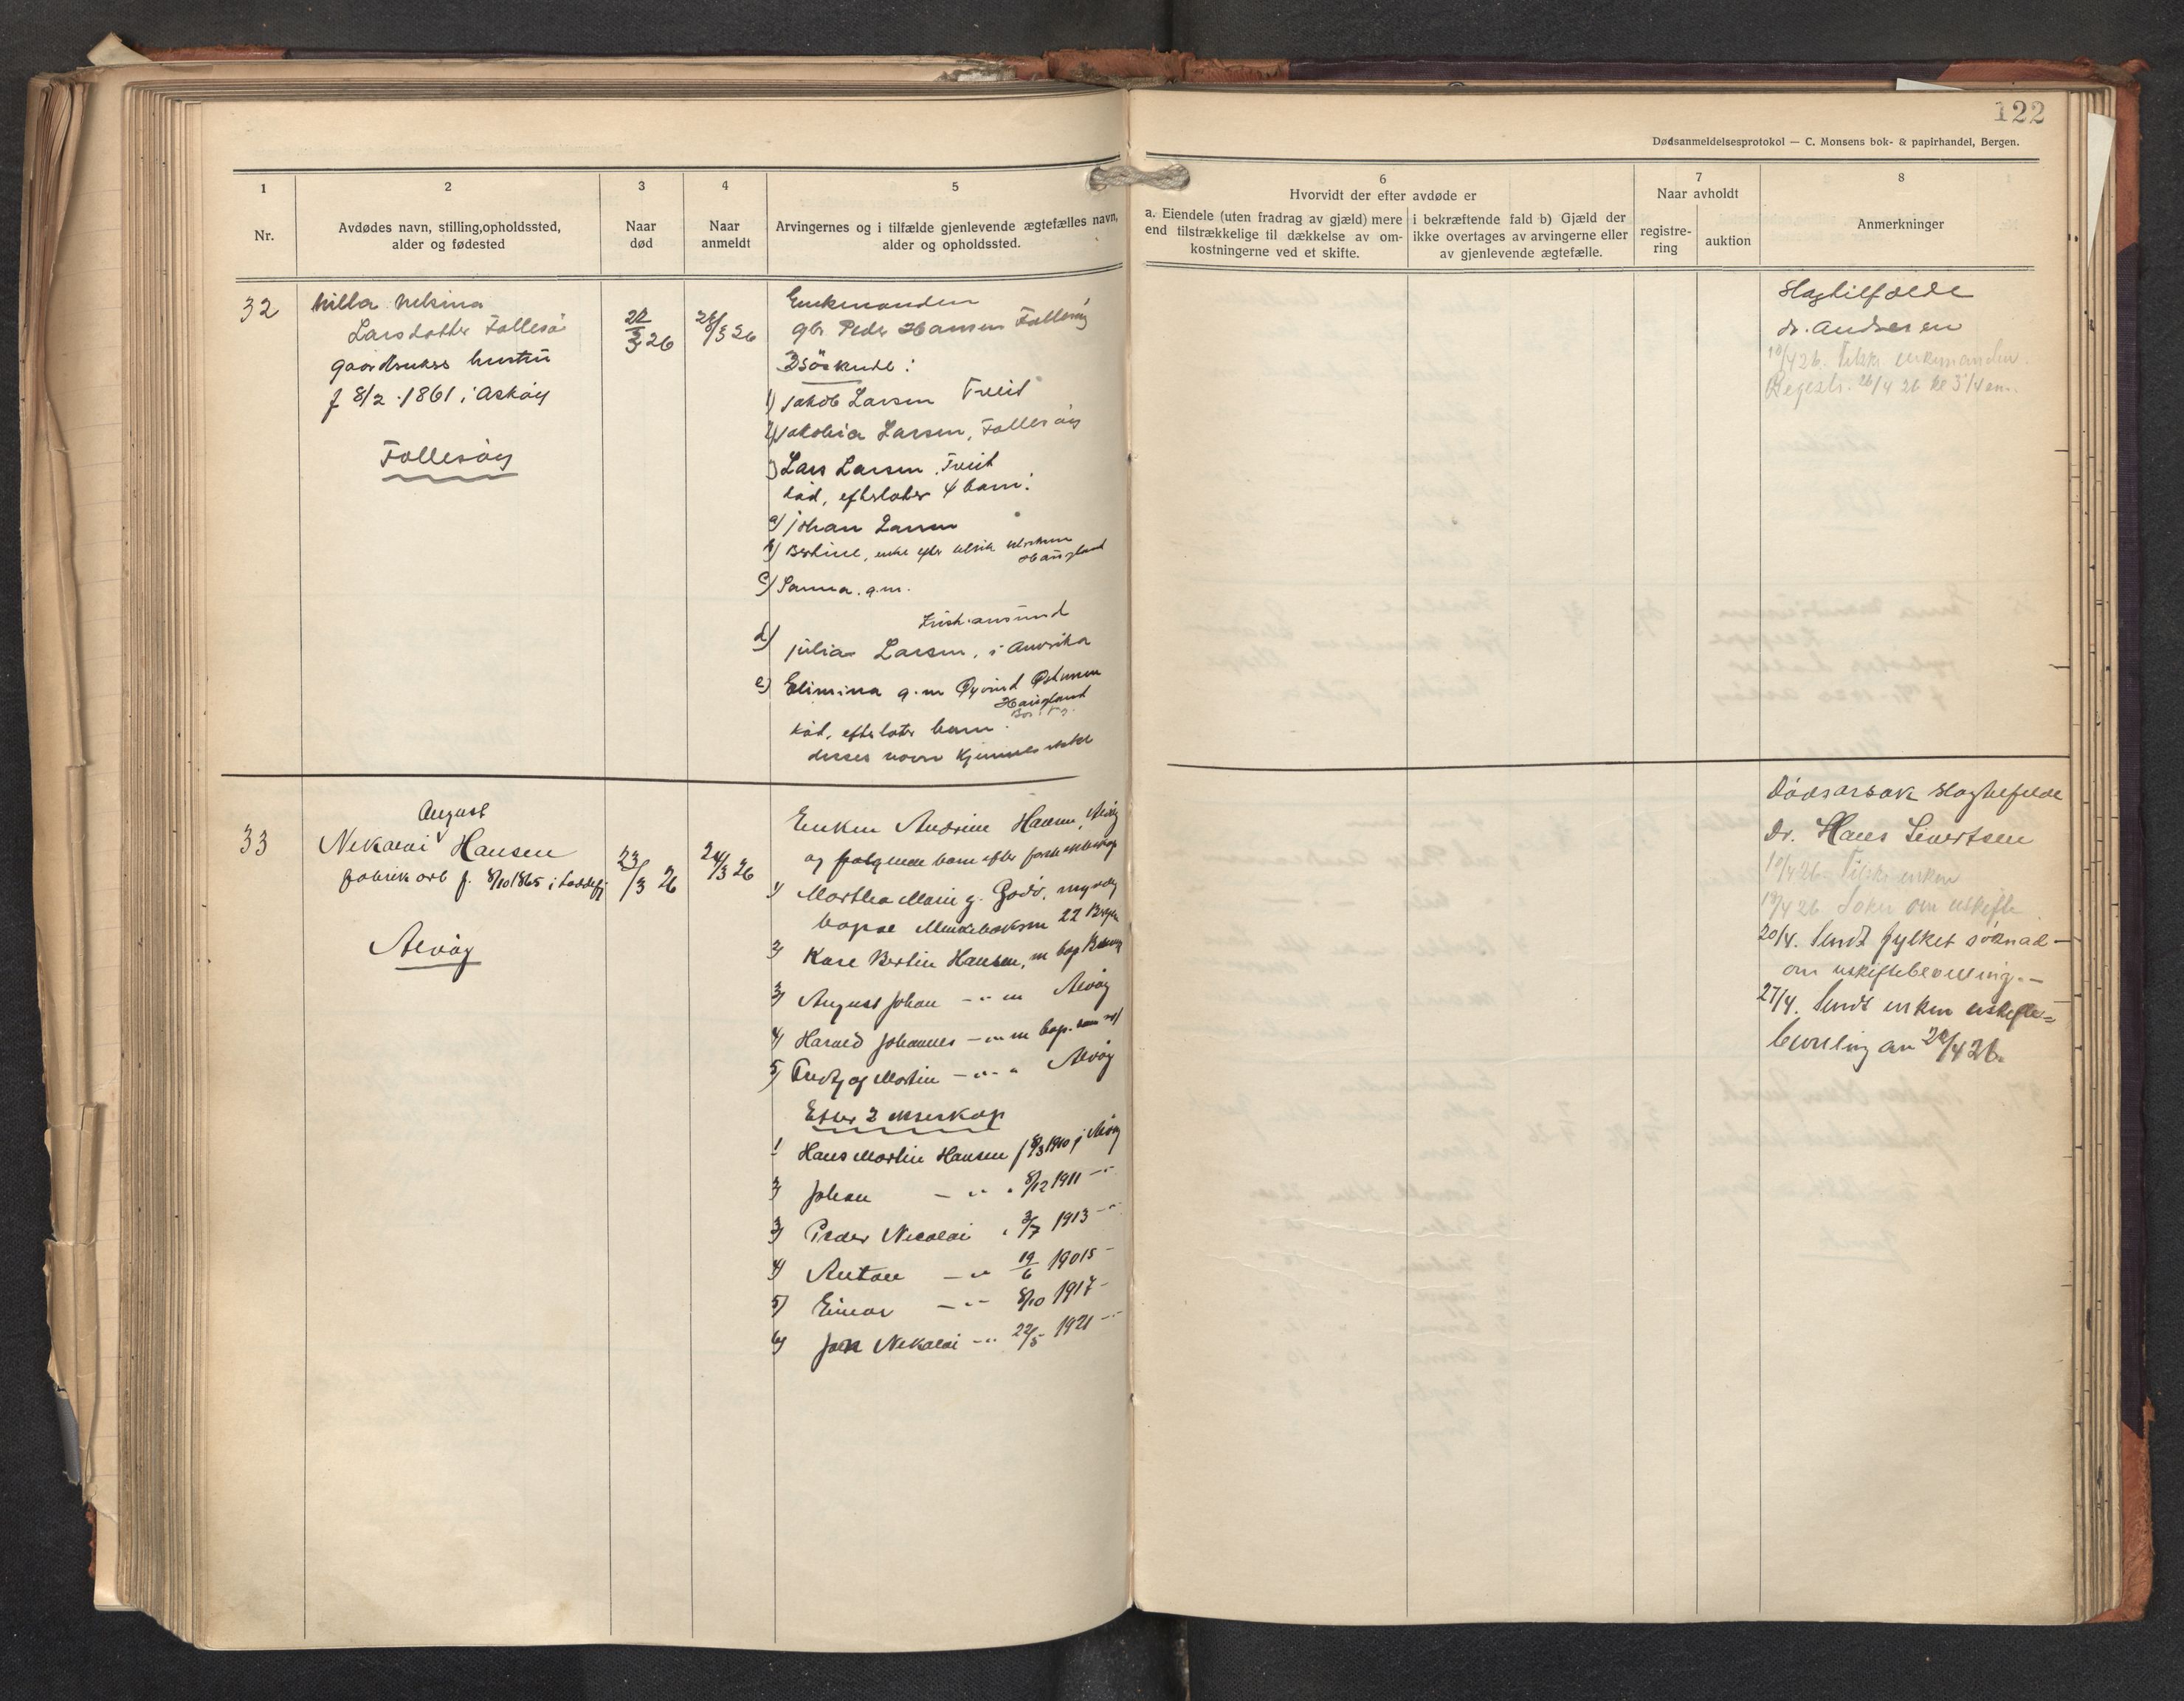 122
Dødsanmeldelsesprotokol — C. Monsens bok- & papirhandel, Bergen.
1
Nr.
2
Avdødes navn, stilling, opholdssted,
alder og fødested
3
Naar
død
4
Naar
anmeldt
5
Arvingernes og i tilfælde gjenlevende ægtefælles navn,
alder og opholdssted.
6
Hvorvidt der efter avdøde er
a. Eiendele (uten fradrag av gjæld) mere
end tilstrækkelige til dækkelse av om-
kostningerne ved et skifte.
i bekræftende fald b) Gjæld der
ikke overtages av arvingerne eller
av gjenlevende ægtefælle.
7
Naar avholdt
registre-
ring
auktion
8
Anmerkninger
32
Milla Nilsina
Larsdotter Follesø
gaardbrukers hustru
f 8/2 1861 i Askøy
Follesøy
22/3 26
26/3 26
Enkemanden
gbr Peder Hansen Follesøy
3 søskende:
1) Jakob Larsen Tveit
2) Jakobia Larsen, Follesøy
3) Lars Larsen Tveit
død, efterlater 4 barn:
a) Johan Larsen
b) Bertine, enke efter Ulrik Ulriksen
Haugland
c) Sanna. g.m.
Kristiansund
d) Julia Larsen, i Amerika
e) Elimina g.m Øyvind
Haugland
død, efterlater barn
disses navn kjennes ikke
Slagtilfælde
dr. Andresen
10/4 26. Tilskr enkemanden.
Registr. 26/4 26 kl 3 3/4 em.
33
August
Nikolai Hansen
fabrikarb f. 8/10 1865 i Laddefj
Alvøy
23/3 26
24/3 26
Enken Andrine Hansen, Alvøy
og følgende barn efter første ekteskap
1) Martha Marie g. Godø, myndig
bopæl Mindebaksen 22 Bergen
2) Kare Bertin Hansen, m bop
3) August Johan — " — m Alvøy
4) Harald Johannes — " — m bop. som
5) Fredrik Martin — " — " Alvøy
Efter 2 ekteskap
1 Hans Martin Hansen f 8/3 1910 i Alvøy
2) Johan — " — " 8/12 1911 — " —
3) Peder Nicolai " 3/7 1913 — " —
4) Anton — " 19/6 19015 —
5) Einar — " — 8/10 1917 —
6) Jon Nikolai — " 22/5 1921 — " —
Dødsarsak slagtilfelde
Dr. Hans Sivertsen
10/4 26. Tilskr enken
19/4 26 Søker om uskifte
20/4. Sendt fylket søknad
om uskiftebevilling. —
27/4. Sendt enken uskifte-
bevilling av 22/4 26.